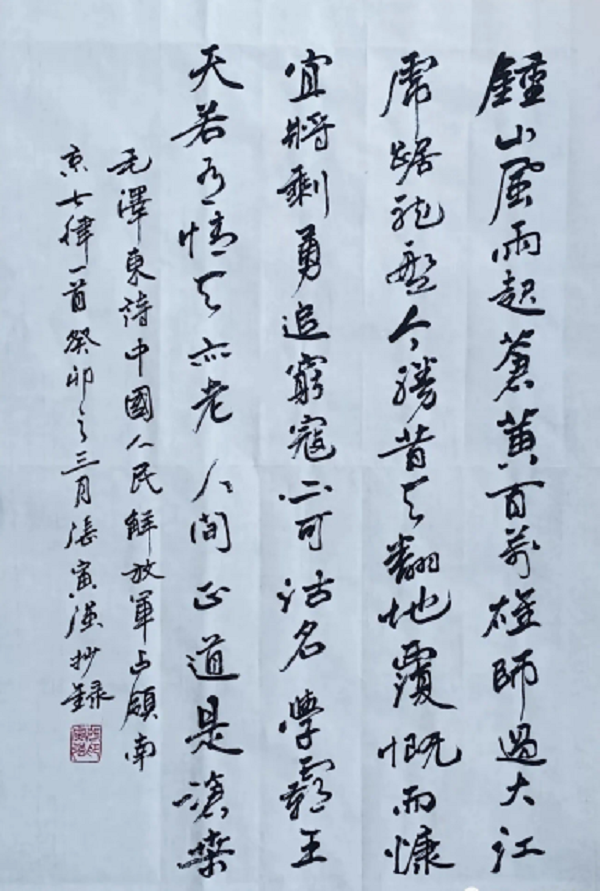 鍾山風雨起蒼黃百萬雄師過大江
虎踞龍盤今勝昔天翻地覆慨而慷
宜將剩勇追窮寇不可沽名學霸王
天若有情天亦老人間正道是滄桑
毛澤東詩中國人民解放軍占領南
京七律一首癸卯之三月寅抄録